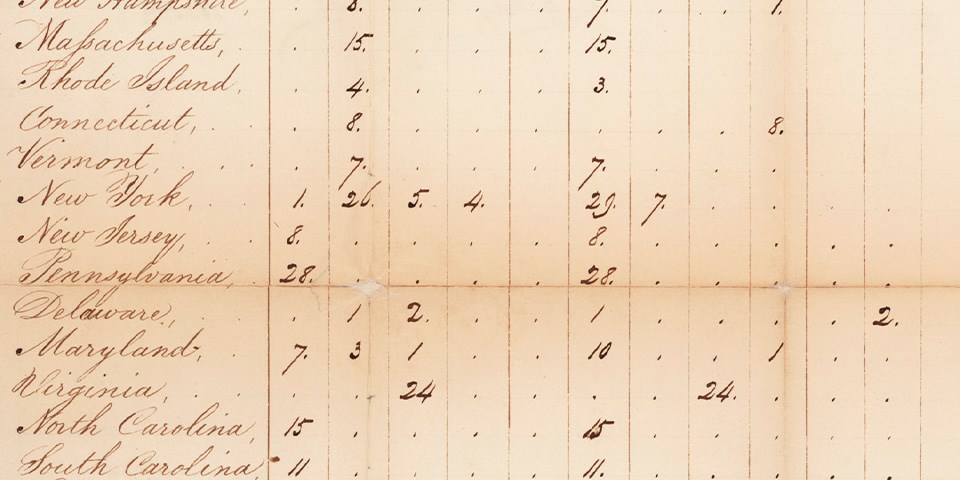 New Hampshire, . 8. . . . 7. . . 1.
Massachusetts, . . 15. . . . 15. . . .
Rhode Island, . 4. . . . 3. . . .
Connecticut, . . . 8. . . . . . . 8.
Vermont, . . . 7. . . . 7. . . .
New York, . . 1. 26. 5. 4. . 29. 7. . . . .
New Jersey, . . 8. . . . . 8. . . . . .
Pennsylvania, . 28. . . . . 28. . . . . .
Delaware, . . . 1 2. . . 1 . . . . 2.
Maryland, . 7. 3 1 . . 10 . . 1 . .
Virginia, . . . . 24 . . . . 24. . . .
North Carolina, 15 . . . . 15 . . . . .
South Carolina, 11 . . . . 11. . . . . .